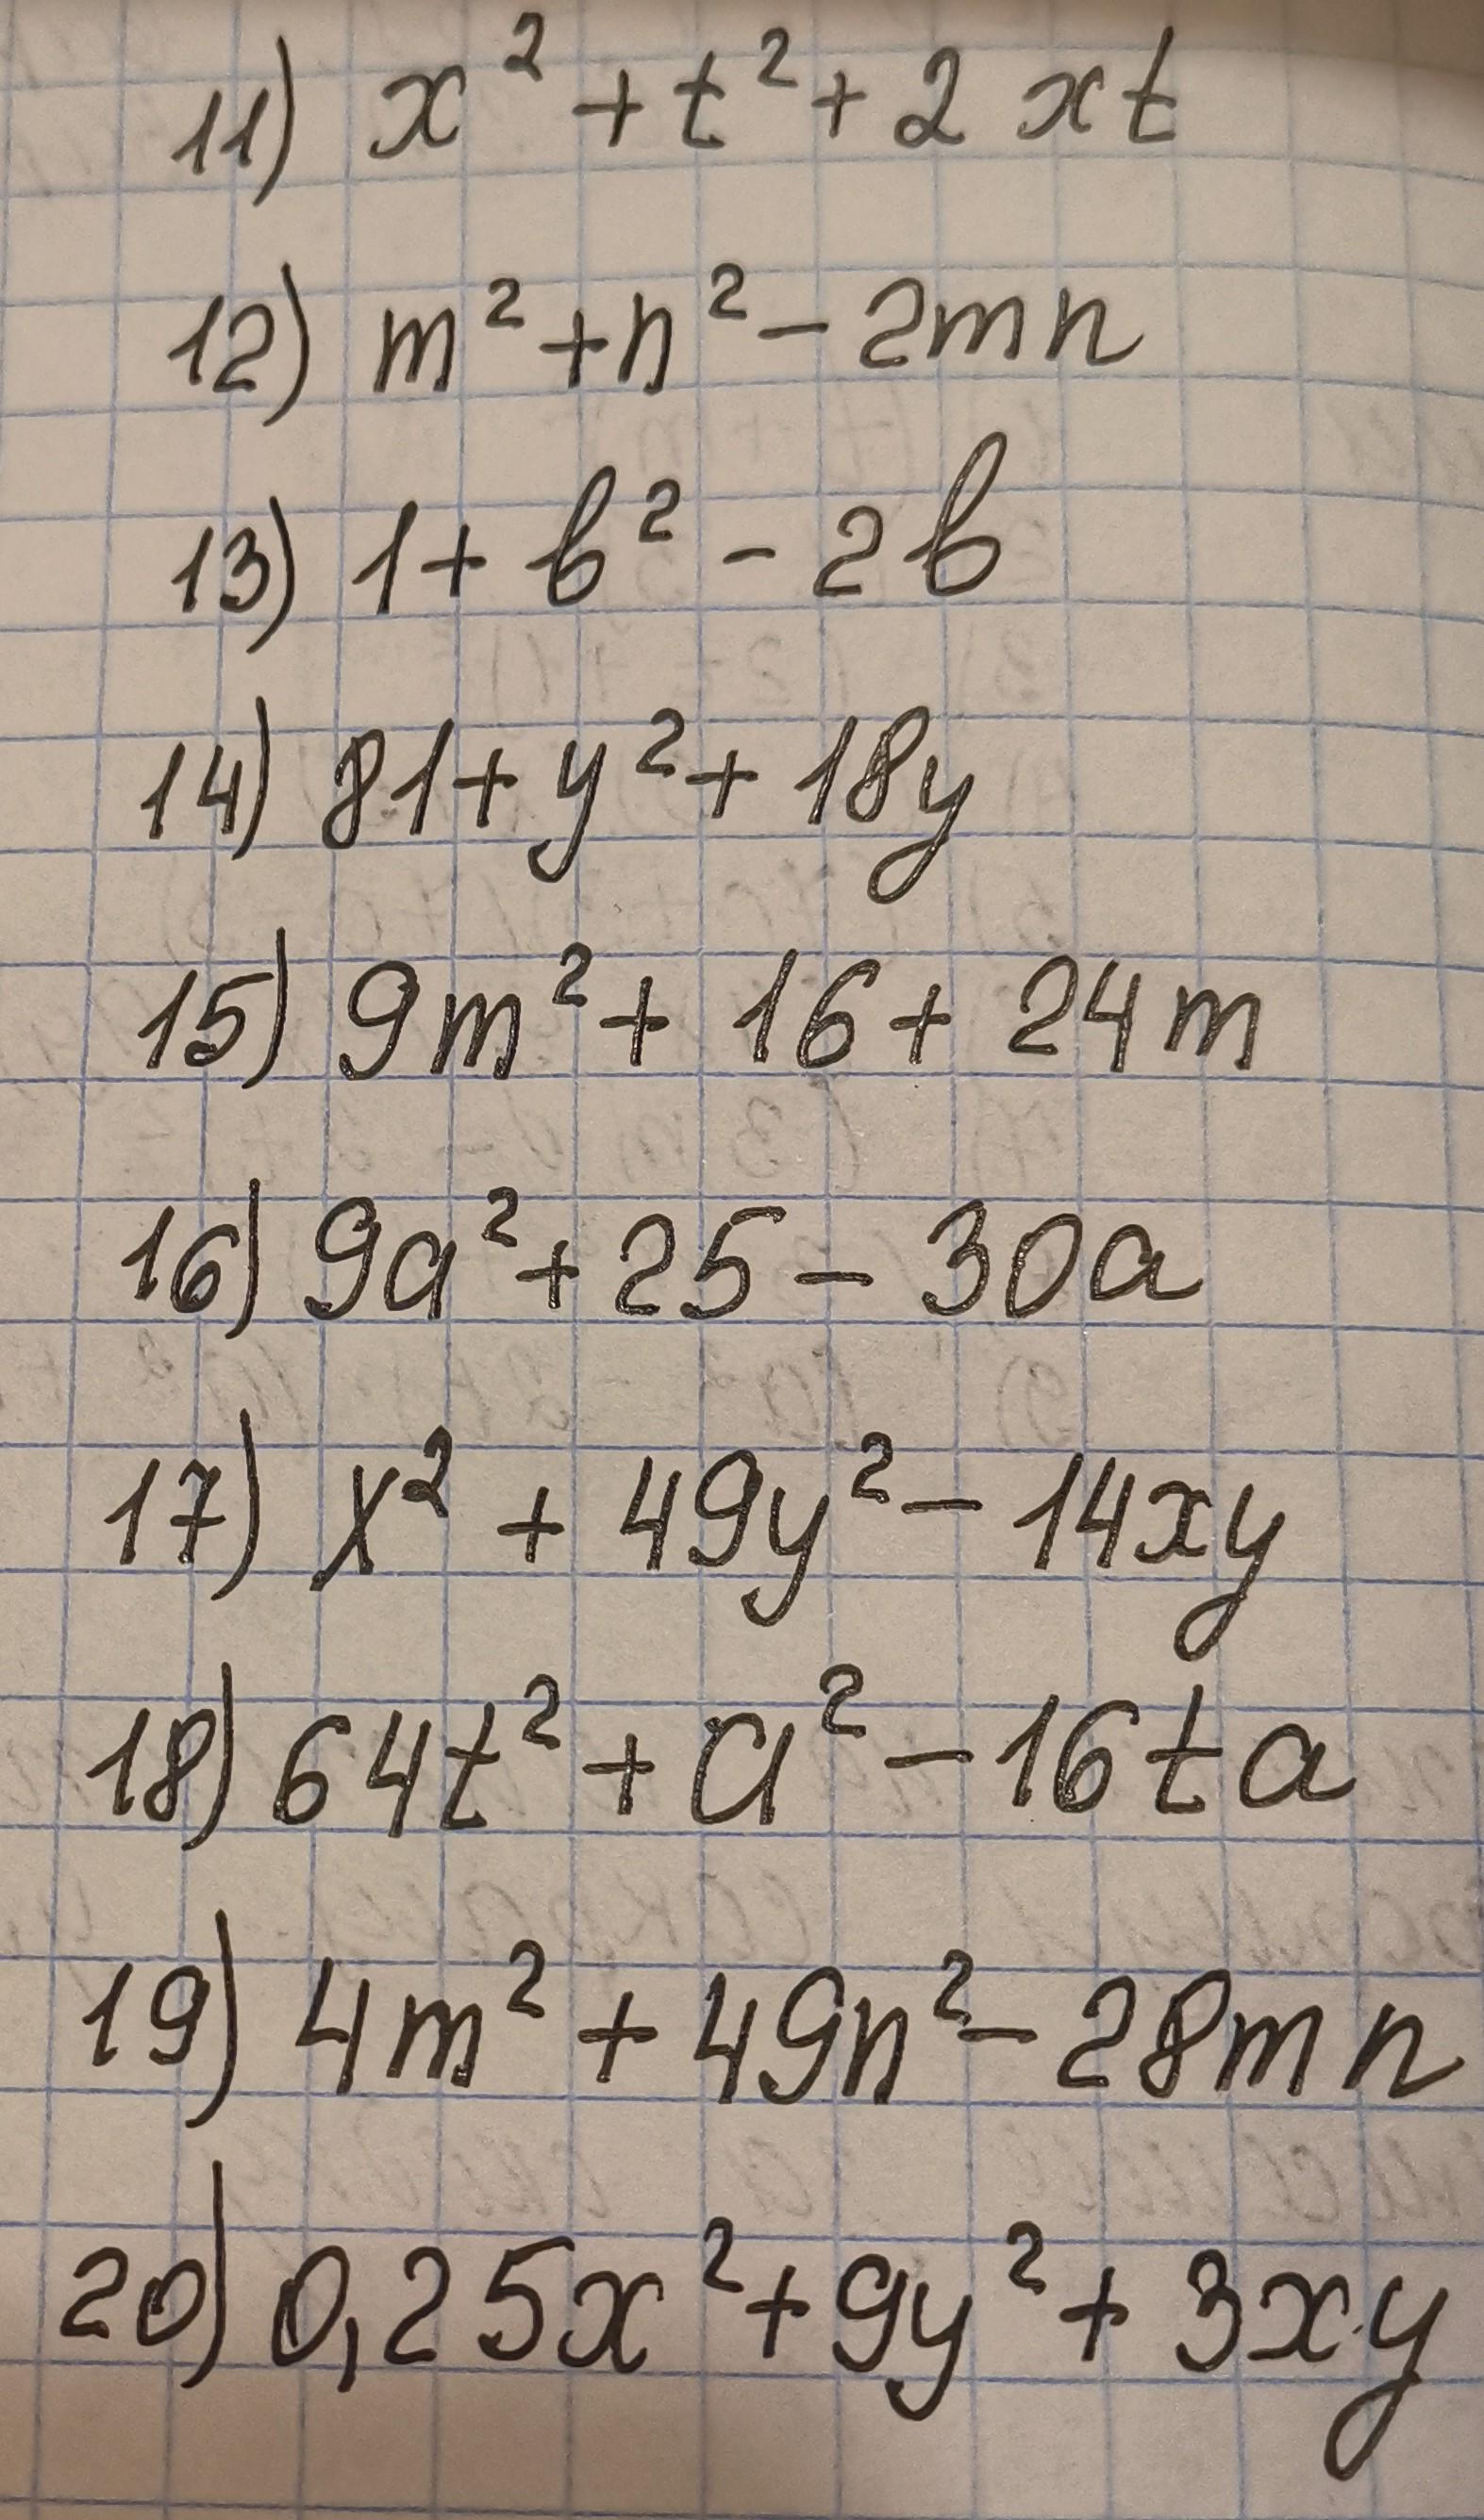 11) x² + t² + 2xt
12) m² + n² - 2mn
13) 1 + b² - 2b
14) 81 + y² + 18y
15) 9m² + 16 + 24m
16) 9a² + 25 - 30a
17) x² + 49y² - 14xy
18) 64t² + a² - 16ta
19) 4m² + 49n² - 28mn
20) 0,25x² + 9y² + 3xy